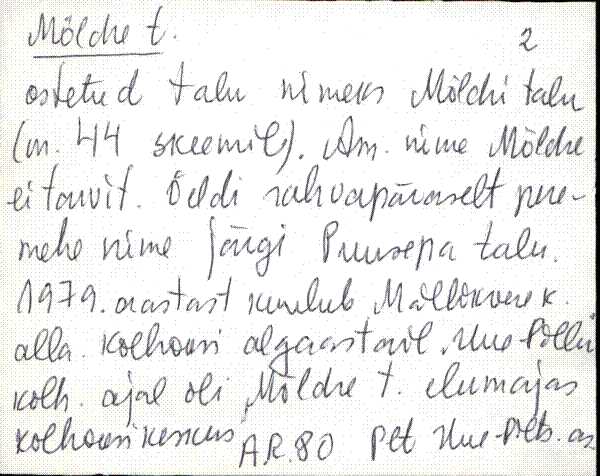 Möldre t.
2
ostetud talu nimeks Möldri talu
(nr. 44 skeemil). Am. nime Möldre
ei tarvit. Öeldi rahvapäraselt pere-
mehe nime järgi Puusepa talu.
1979. aastast kuulub Mällikvere k.
alla. Kolhoosi algaastail, Uue-Põllu
kolh. ajal oli Möldre t. elumajas
kolhoosikeskus.
AR.80 Plt Uue-Põlts. as